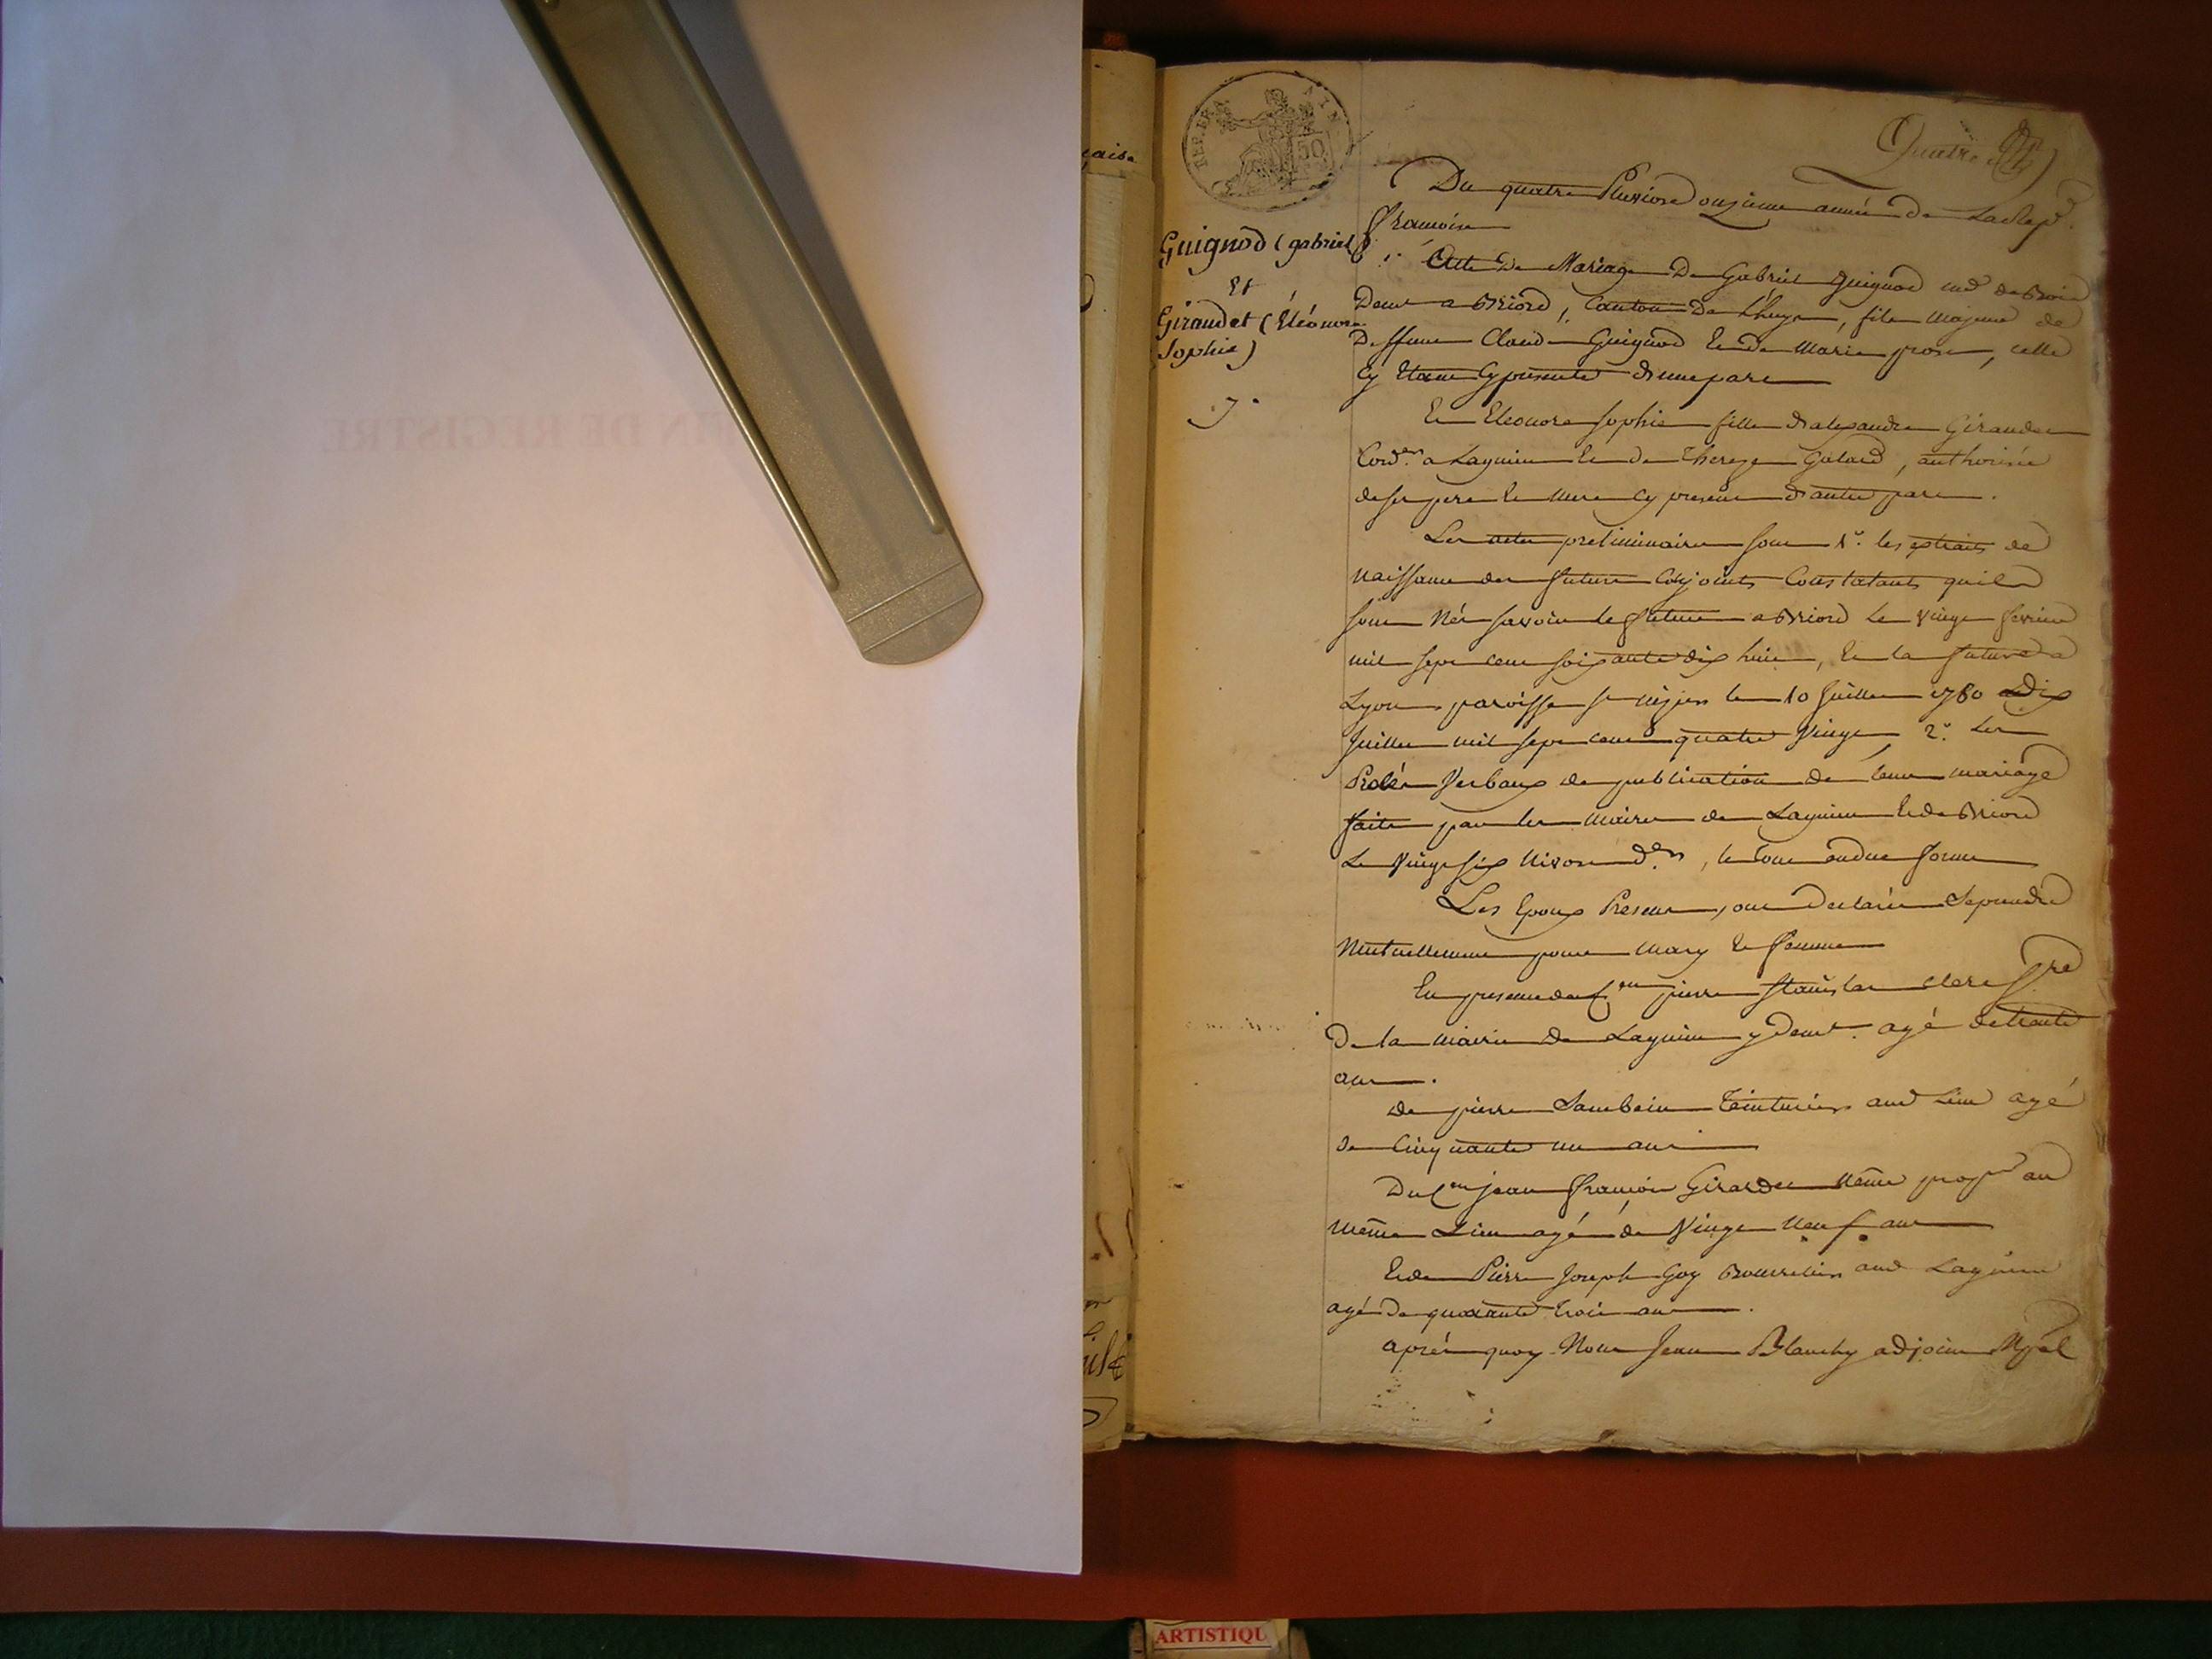 FIN DE REGISTRE
çaise
REP. FRA
AIN
50
Quatre
Guignod (gabriel)
et
Giraudet (Eléonore
Sophie)
7.
Du quatre Pluviose onzieme année de La Rep.
francoise
Acte de Mariage De Gabriel Guignod md de Bois
Demt a Briord, Canton de Lhuys, fils majeur de
Deffunt Claude Guignod Et de Marie prost, celle
cy Etant Cy presente d'une part
Et Eleonore Sophie fille d'alexandre Giraudet
Cord.er a Lagnieu Et de Thereze Galand, authorisée
de ses pere Et mere Cy present d'autre part.
Les actes preliminaires sont 1°. les extraits de
Naissance des futurs Conjoints Constatants quils
sont Nés savoir le futur a Briord Le Vingt fevrier
mil sept cent soixante dix huit, Et la future a
Lyon paroisse St Nizier le 10 Juillet 1780 Dix
Juillet mil sept cent quatre Vingt, 2°. Les
Procès Verbaux de publication de leur mariage
faite par les maires de Lagnieu Et de Briord
Le Vingt six Nivose d.er, le tout en due forme
Les Epoux Present, ont Declarés Se prendre
Mutuellement pour mary Et femme
En presence du Cen pierre Stanislas Clerc Sre
De la mairie de Lagnieu y demt. agé de trente
ans.
de pierre Sambein Teinturier aud Lieu agé
de Cinquante un ans
Du Cen jean François Girardet propre au
même Lieu agé de Vingt Neuf ans
Et de Pierre Joseph Goy Bourrelier aud Lagnieu
agé de quarante trois ans.
après quoy Nous Jean Blanchy adjoint Mpal